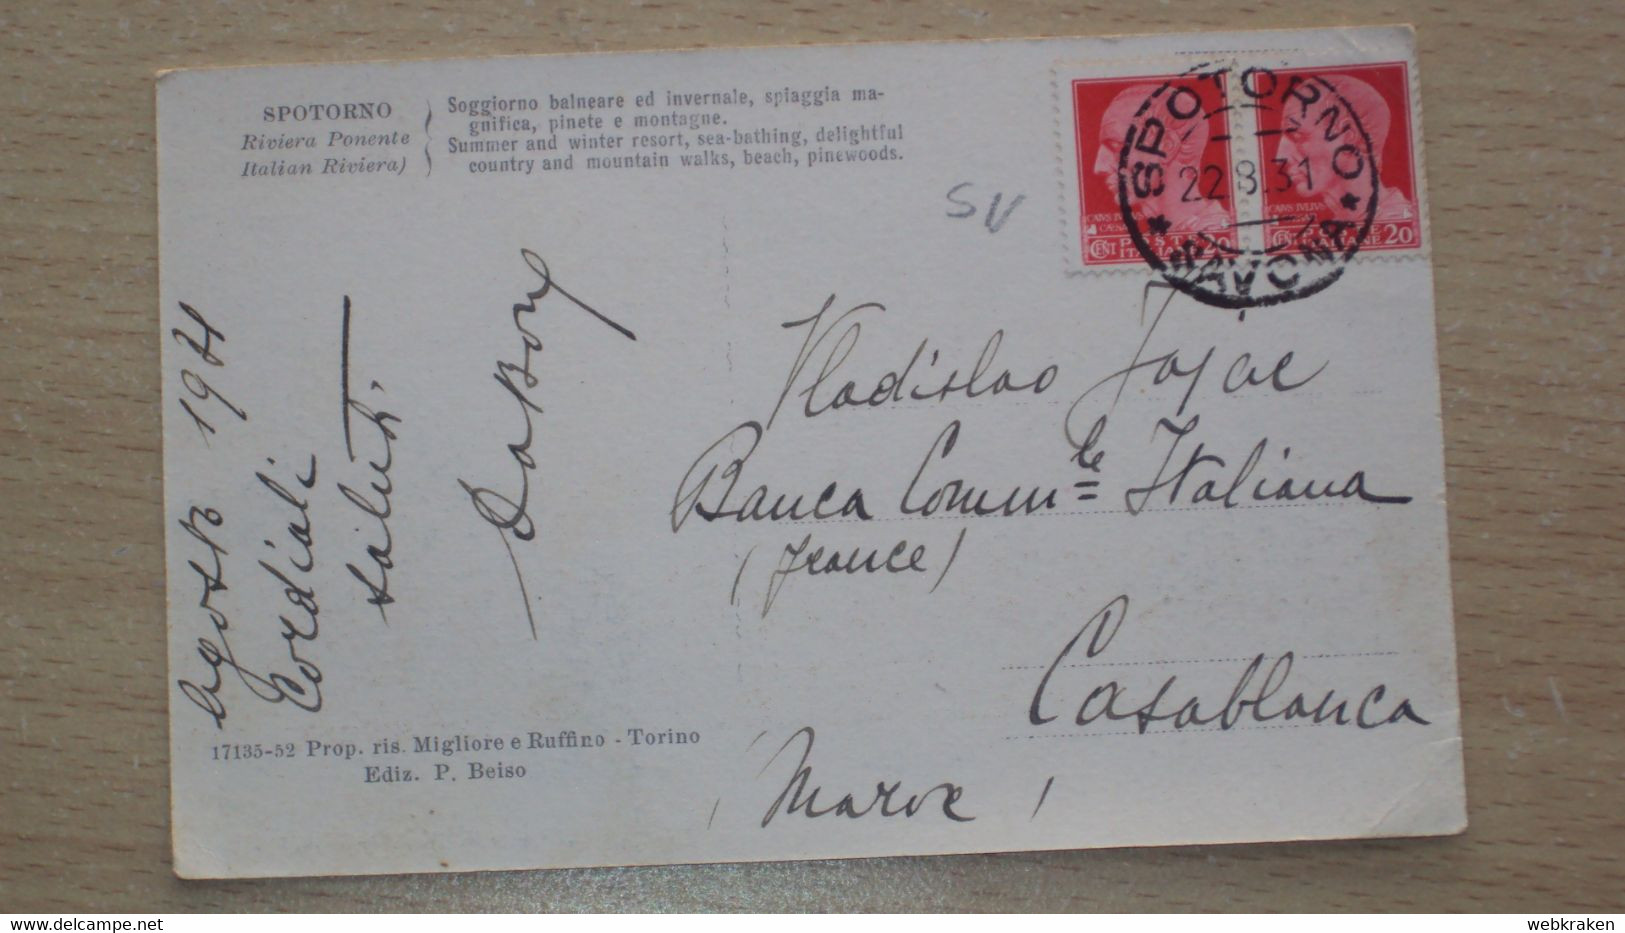 SPOTORNO
Riviera Ponente
Italian Riviera)
Soggiorno balneare ed invernale, spiaggia ma-
gnifica, pinete e montagne.
Summer and winter resort, sea-bathing, delightful
country and mountain walks, beach, pinewoods.
SV
CAIVS IVLIVS
CENT POSTE ITALIANE 20
CENT ITALIANE 20
SPOTORNO
22.8.31
SAVONA
agosto 1931
Cordiali
saluti.
Vladislao
Banca Comm=le Italiana
(France)
Casablanca
(Maroc)
17135-52 Prop. ris. Migliore e Ruffino - Torino
Ediz. P. Beiso
webkraken